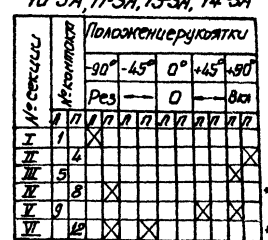 10-ЗА, 11-ЗА, 13-ЗА, 14-ЗА
№ секции
№ контакта
Положение рукоятки
-90° -45° 0° +45° +90°
Рез ← 0 ← Вкл
Л П Л П Л П Л П Л П
I 1
II 4
III 5
IV 8
V 9
VI 12